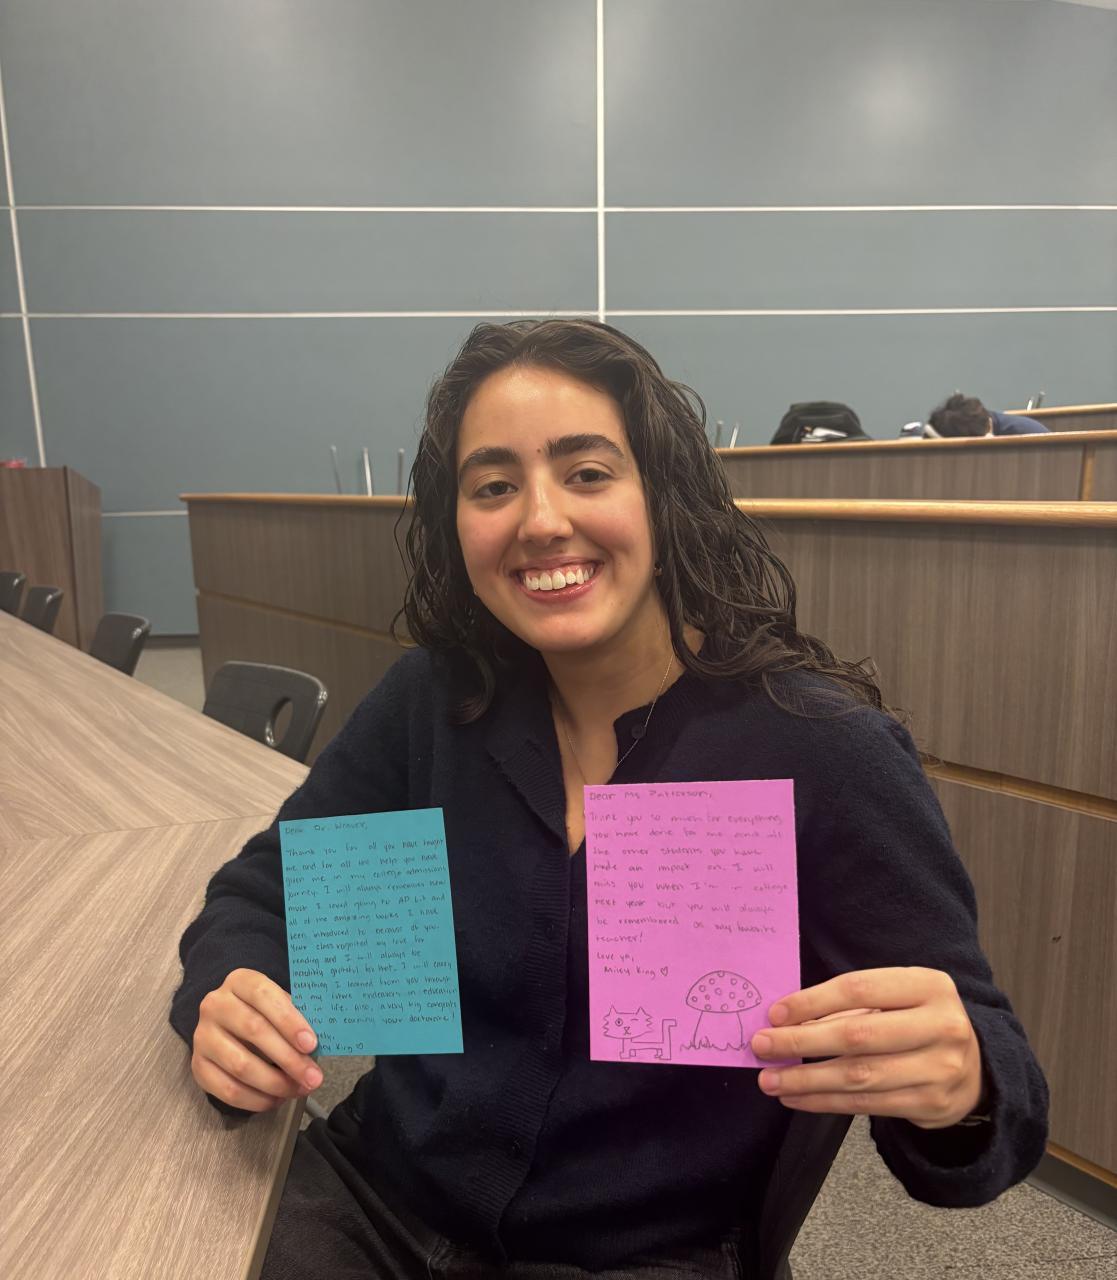 Dear Dr. Weaver,
Thank you for all you have taught
me and for all the help you have
given me in my college admissions
journey. I will always remember how
much I loved going to AP Lit and
all of the amazing books I have
been introduced to because of you.
Your class my love for
reading and I will always be
incredibly grateful for that. I will carry
everything I learned from you through
all my future endeavors in education
and in life. Also, a very big congrats
you on earning your doctorate!
King ♡
Dear Ms. Patterson,
Thank you so much for everything
you have done for me and all
the other students you have
made an impact on. I will
miss you when I'm in college
next year but you will always
be remembered as my favorite
teacher!
Love ya,
Miley King ♡